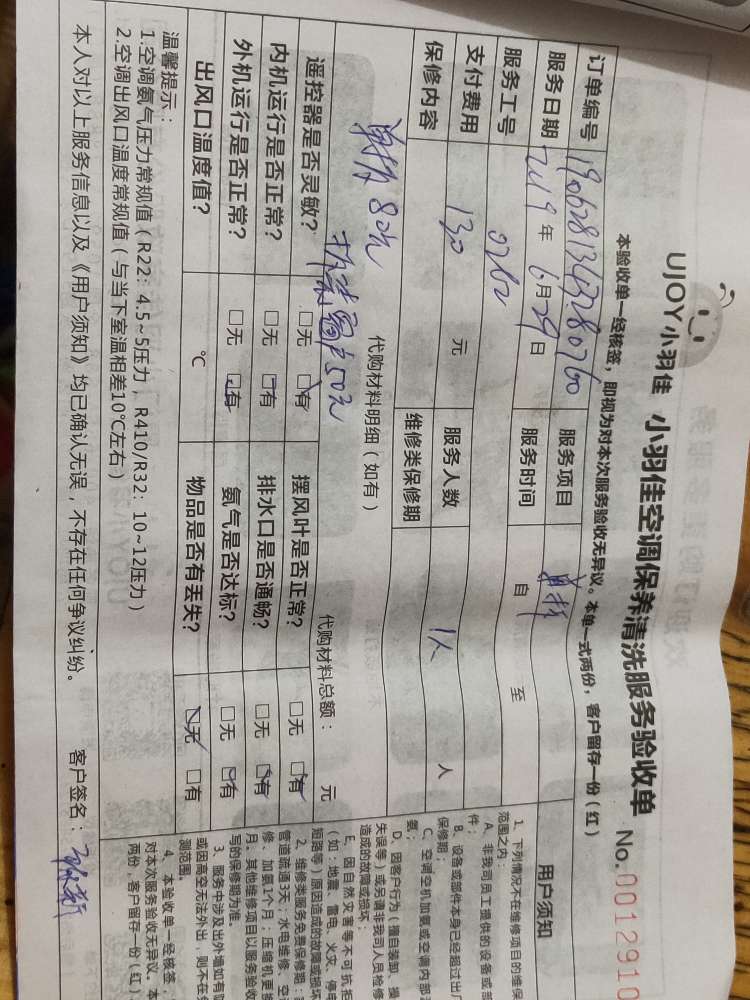 UJOY小羽佳 小羽佳空调保养清洗服务验收单 No.0012910
本验收单一经核签，即视为对本次服务验收无异议。本单一式两份，客户留存一份（红）
订单编号 服务项目
服务日期 2019年6月29日 服务时间 自 至
服务工号 0762
支付费用 130 元 服务人数 1人 人
保修内容 维修类保修期
代购材料明细（如有） 代购材料总额： 元
单拆80元
拆装 150元
遥控器是否灵敏？ 无 有 摆风叶是否正常？ 无 有
内机运行是否正常？ 无 有 排水口是否通畅？ 无 有
外机运行是否正常？ 无 有 氨气是否达标？ 无 有
出风口温度值？ ℃ 物品是否有丢失？ 无 有
温馨提示：
1.空调氨气压力常规值（R22：4.5~5压力，R410/R32：10~12压力）
2.空调出风口温度常规值（与当下室温相差10℃左右）
本人对以上服务信息以及《用户须知》均已确认无误，不存在任何争议纠纷。 客户签名：
用户须知
1、下列情况不在维修项目的维保
范围之内：
A、非我司员工提供的设备或部
件；
B、设备或部件本身已经超过出厂
保修期；
C、空调空机加氨或空调内部
氨；
D、因客户行为（擅自装卸、操
失误等）或另请非我司人员检修
造成的故障或损坏；
E、因自然灾害等不可抗拒
（如：地震、雷电、火灾、停电
短路等）原因造成的故障或损坏
2、维修类服务免费保修期：
管道疏通3天；水电维修、空
修、加氨1个月；压缩机更换
月。其他维修项目以服务验收
写的保修期为准。
3、服务中涉及出外墙如有
或因高空无法外出，则不在
测范围。
4、本验收单一经核签，
对本次服务验收无异议。本
两份，客户留存一份（红）